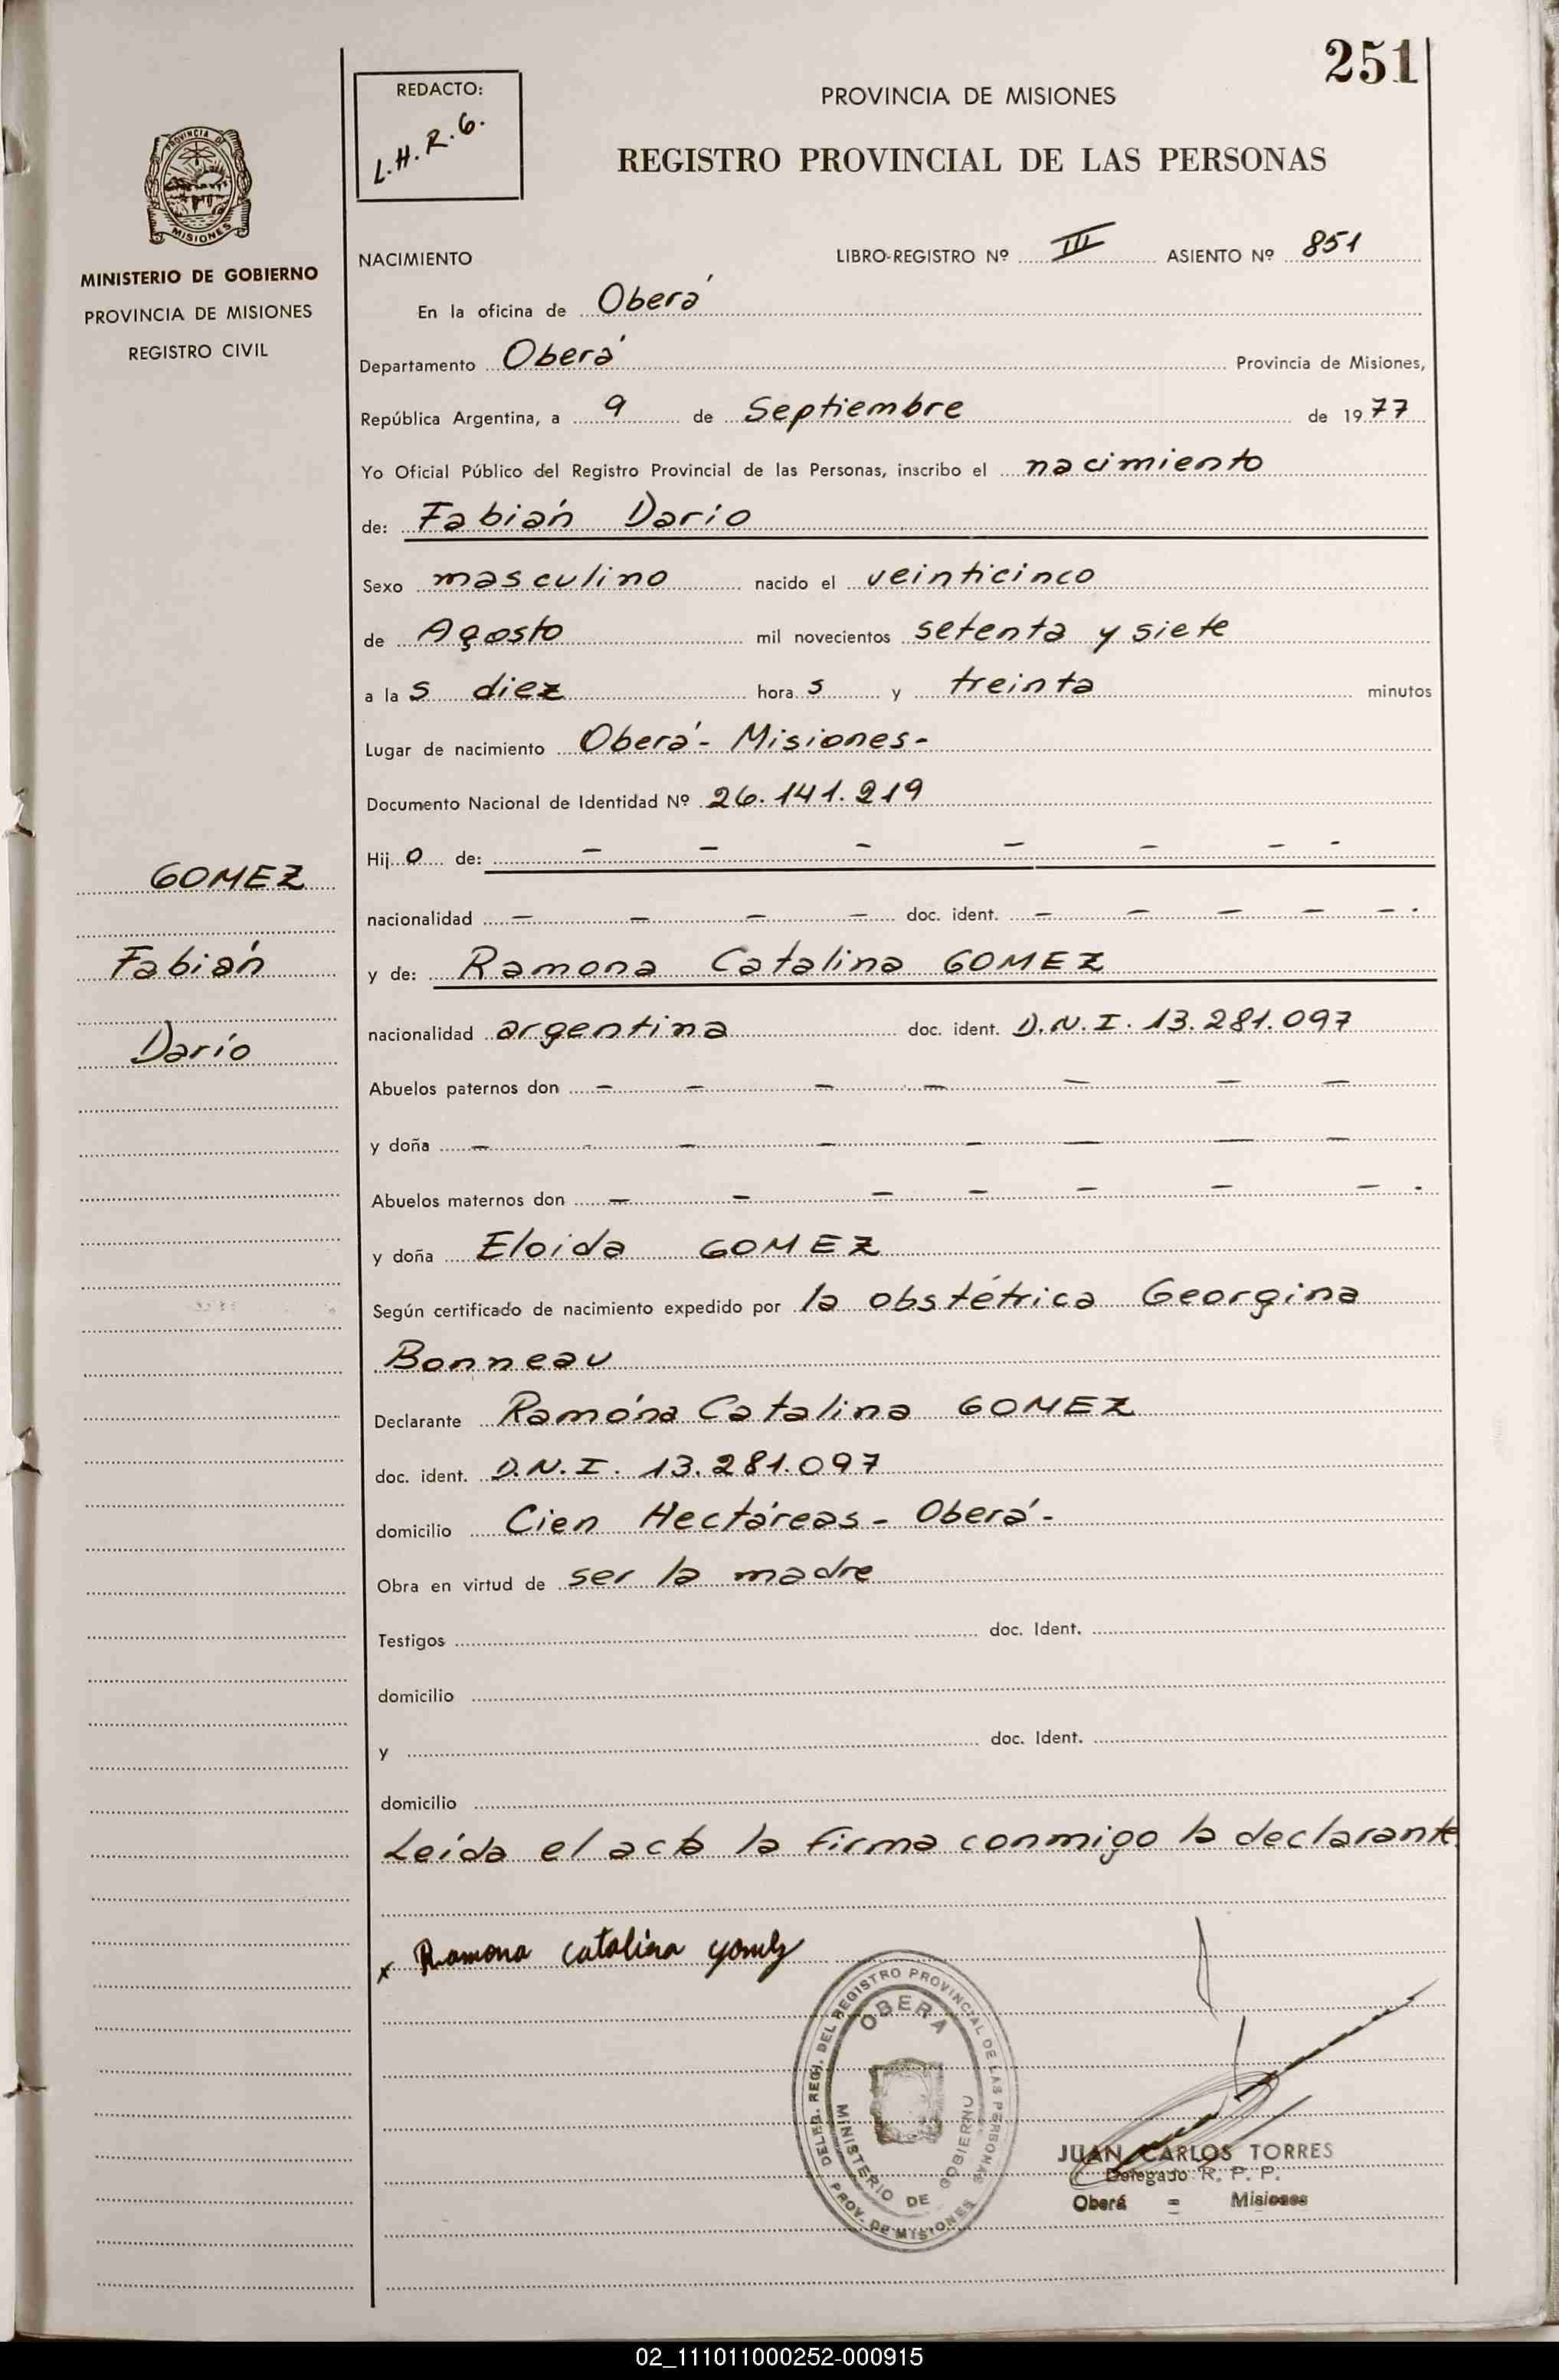 251
REDACTO:
L.H.R.G.
PROVINCIA DE MISIONES
REGISTRO PROVINCIAL DE LAS PERSONAS
PROVINCIA DE
MISIONES
MINISTERIO DE GOBIERNO
PROVINCIA DE MISIONES
REGISTRO CIVIL
NACIMIENTO LIBRO-REGISTRO Nº III ASIENTO Nº 851
En la oficina de Oberá
Departamento Oberá Provincia de Misiones,
República Argentina, a 9 de Septiembre de 1977
Yo Oficial Público del Registro Provincial de las Personas, inscribo el nacimiento
de: Fabián Dario
Sexo masculino nacido el veinticinco
de Agosto mil novecientos setenta y siete
a las diez horas y treinta minutos
Lugar de nacimiento Oberá - Misiones -
Documento Nacional de Identidad Nº 26.141.219
Hijo de: - - - - - - -
GOMEZ
nacionalidad - - - - doc. ident. - - - - - .
Fabián
y de: Ramona Catalina GOMEZ
Darío
nacionalidad argentina doc. ident. D.N.I. 13.281.097
Abuelos paternos don - - - - - - -
y doña - - - - - - - -
Abuelos maternos don - - - - - - - .
y doña Eloida GOMEZ
Según certificado de nacimiento expedido por la obstétrica Georgina
Bonneau
Declarante Ramóna Catalina GOMEZ
doc. ident. D.N.I. 13.281.097
domicilio Cien Hectáreas - Oberá -
Obra en virtud de ser la madre
Testigos doc. Ident.
domicilio
y doc. Ident.
domicilio
Leída el acta la firma conmigo la declarante
x Ramona catalina gomez
DELEG. REGI. DEL REGISTRO PROVINCIAL DE LAS PERSONAS
OBERA
MINISTERIO DE GOBIERNO
PROV. DE MISIONES
JUAN CARLOS TORRES
Delegado R. P. P.
Oberá = Misiones
02_111011000252-000915